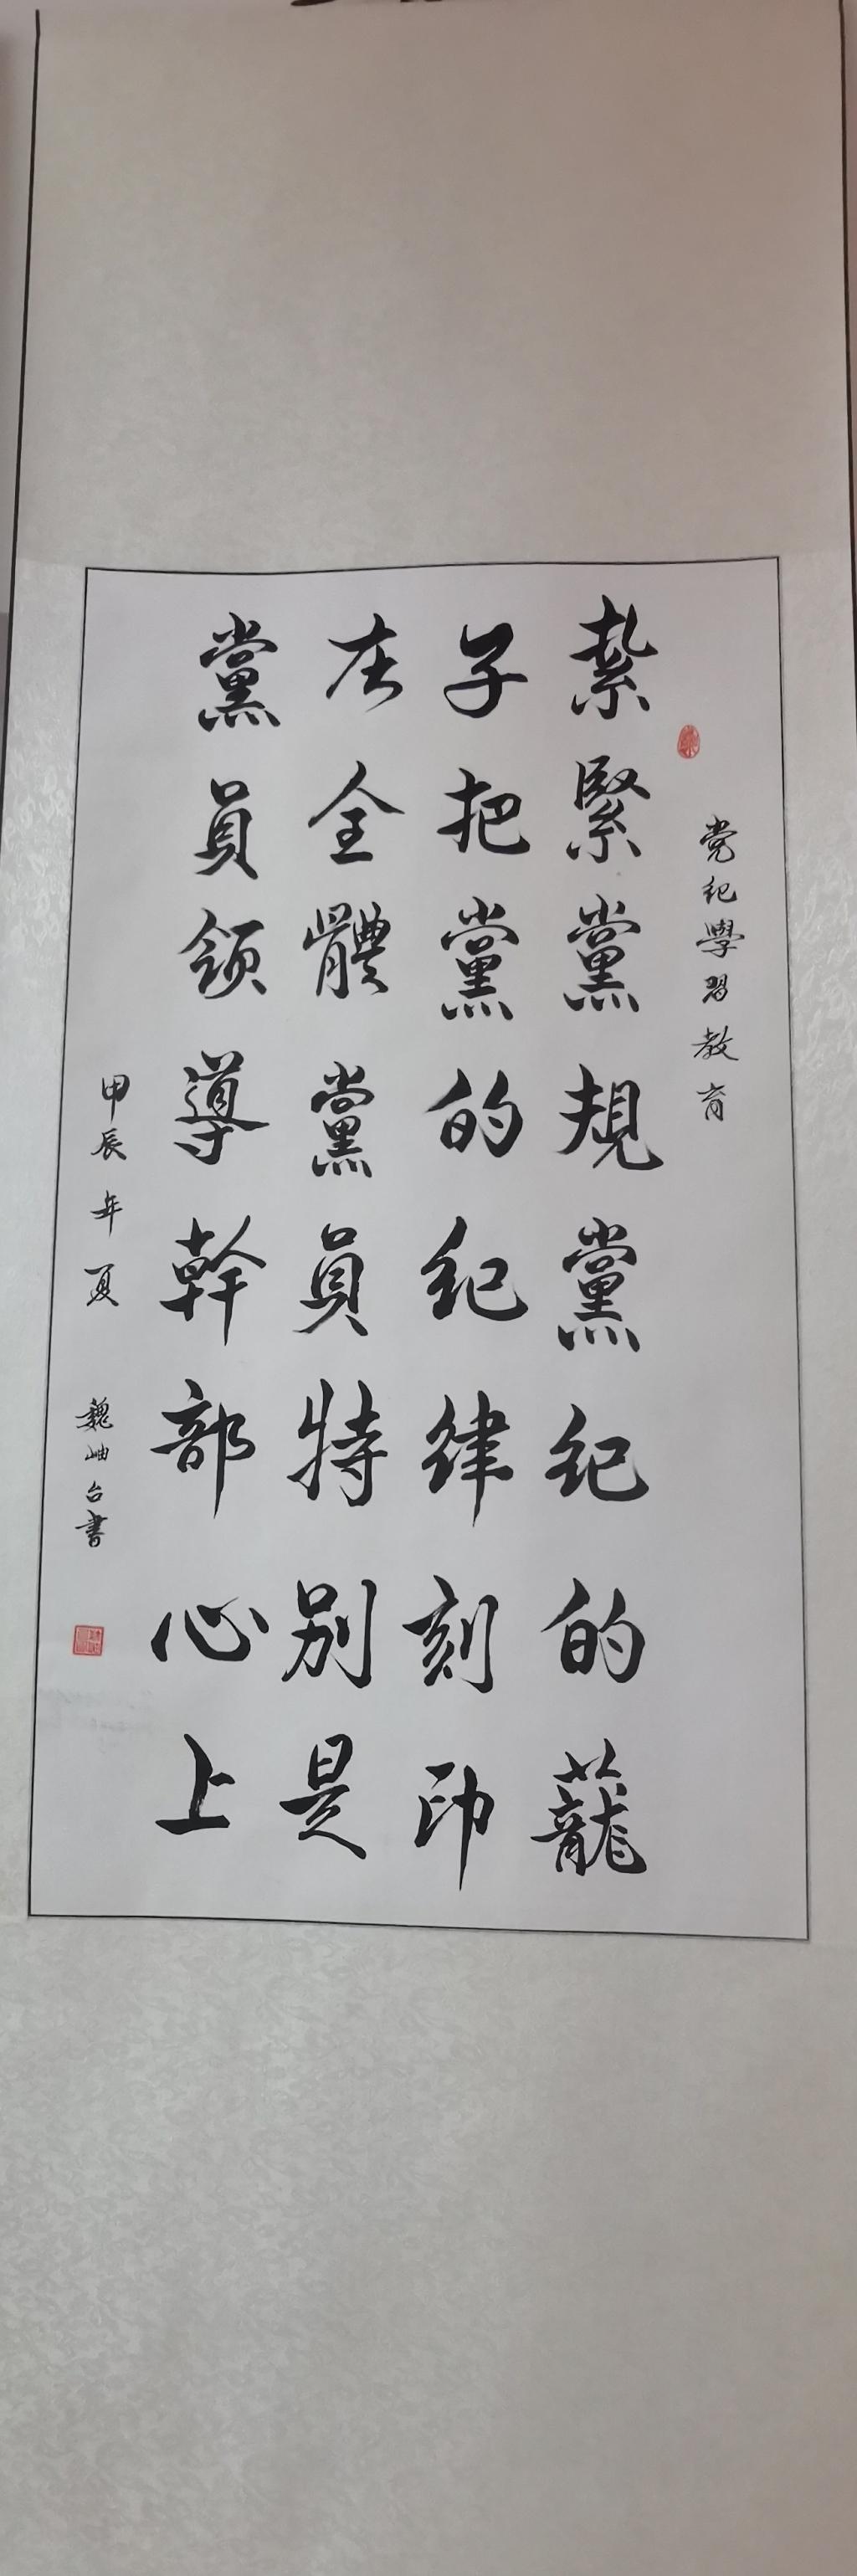 党纪學習教育
紮緊黨規黨纪的蘢
子把黨的纪律刻印
在全體黨員特别是
黨員领導幹部心上
甲辰年夏 魏岫台書